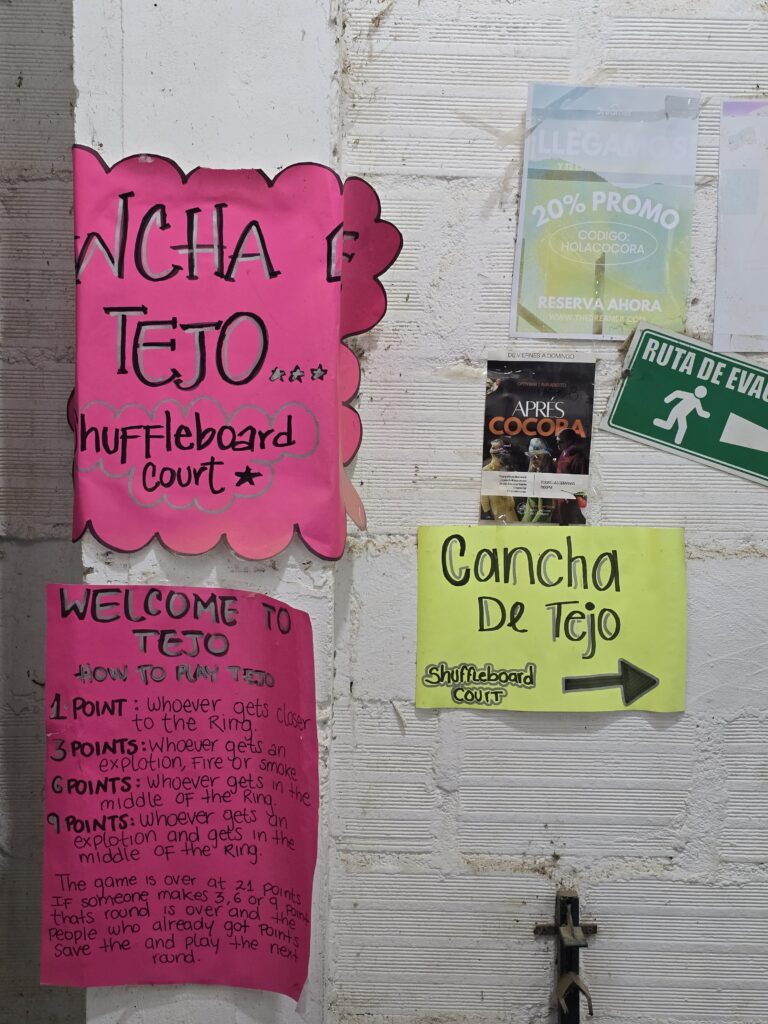 NCHA E
TEJO...
huffleboard
court
WELCOME TO
TEJO
HOW TO PLAY TEJO
1 POINT: Whoever gets closer
to the Ring.
3 POINTS: Whoever gets an
explotion, Fire or smoke
6 POINTS: Whoever gets in the
middle of the Ring.
9 POINTS: Whoever gets an
explotion and gets in the
middle of the Ring.
The game is over at 21 points
If someone makes 3, 6 or 9 point
thats round is over and the
people who already got points
save the and play the next
round.
Dreamer
¡LLEGAMOS
20% PROMO
CODIGO:
HOLACOCORA
RESERVA AHORA
WWW.THEDREAMER.COM
RUTA DE EVAC
DE VIERNES A DOMINGO
APRÉS
COCORA
Cancha
De Tejo
Shuffleboard
Court